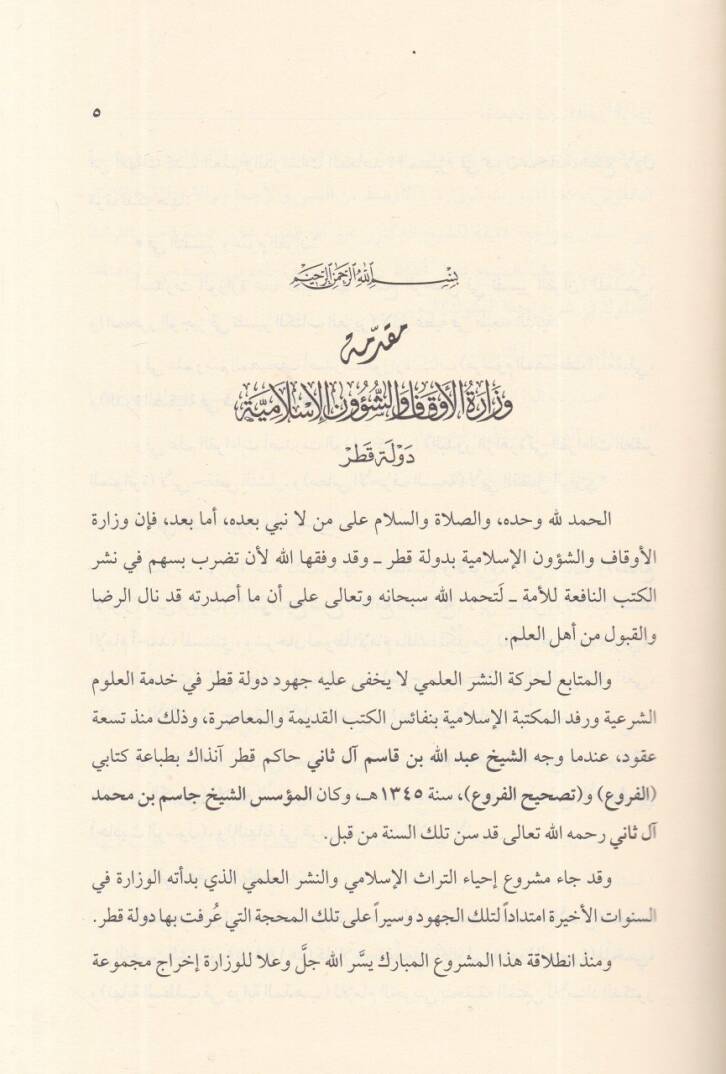 ٥
بسم الله الرحمن الرحيم
مقدّمة
وَزَارَةُ الأَوْقَافِ وَالشُّؤُونِ الإِسْلَامِيَّةِ
دَوْلَة قَطَرْ
الحمد لله وحده، والصلاة والسلام على من لا نبي بعده، أما بعد، فإن وزارة
الأوقاف والشؤون الإسلامية بدولة قطر ــ وقد وفقها الله لأن تضرب بسهم في نشر
الكتب النافعة للأمة ــ لَتحمد الله سبحانه وتعالى على أن ما أصدرته قد نال الرضا
والقبول من أهل العلم.
والمتابع لحركة النشر العلمي لا يخفى عليه جهود دولة قطر في خدمة العلوم
الشرعية ورفد المكتبة الإسلامية بنفائس الكتب القديمة والمعاصرة، وذلك منذ تسعة
عقود، عندما وجه الشيخ عبد الله بن قاسم آل ثاني حاكم قطر آنذاك بطباعة كتابي
(الفروع) و(تصحيح الفروع)، سنة ١٣٤٥هـ، وكان المؤسس الشيخ جاسم بن محمد
آل ثاني رحمه الله تعالى قد سن تلك السنة من قبل.
وقد جاء مشروع إحياء التراث الإسلامي والنشر العلمي الذي بدأته الوزارة في
السنوات الأخيرة امتداداً لتلك الجهود وسيراً على تلك المحجة التي عُرفت بها دولة قطر.
ومنذ انطلاقة هذا المشروع المبارك يسَّر الله جلَّ وعلا للوزارة إخراج مجموعة